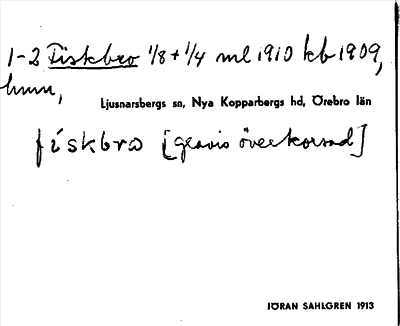 1-2 Fiskbro 1/8 + 1/4 ml 1910 kb 1909,
hmn,
Ljusnarsbergs sn, Nya Kopparbergs hd, Örebro län
fiskbrω [gravis överkorsad]
JÖRAN SAHLGREN 1913